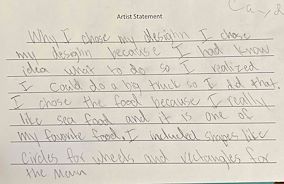 Cayd
Artist Statement
Why I chose my desighn I chose
my desighn because I had know
idea what to do so I realized
I could do a big truck so I did that.
I chose the food because I really
like sea food and it is one of
my favorite food. I included shapes like
circles for wheels and rectangles for
the Main